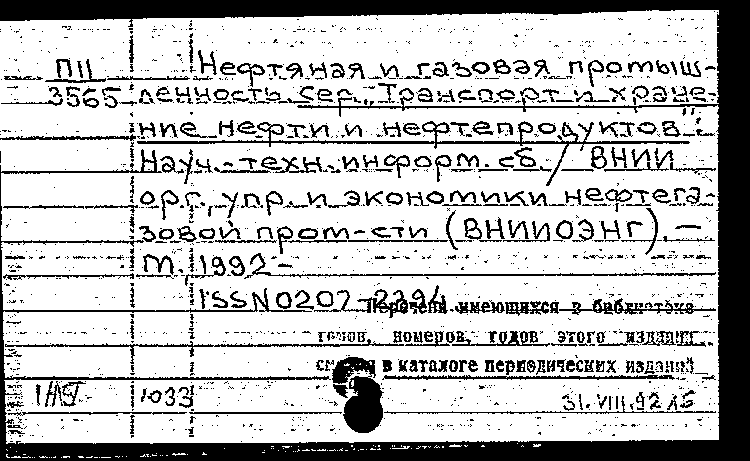 П11
3565
Нефтяная и газовая промыш-
ленность. Сер. „Транспорт и хране-
ние нефти и нефтепродуктов":
Науч.-техн. информ. сб. / ВНИИ
орг., упр. и экономики нефтега-
зовой пром-сти (ВНИИОЭНГ). —
М., 1992 –
ISSN 0207-2394
Перечень имеющихся в библиотеке
томов, номеров, годов этого издания
в каталоге периодических изданий
1033
31.VIII.92